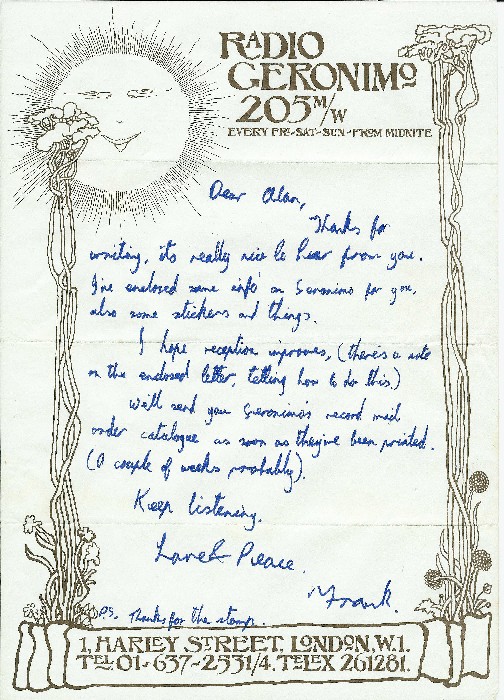 RADIO
GERONIMO
205 M/W
EVERY FRI-SAT-SUN-FROM MIDNITE
Dear Alan,
Thanks for
writing, its really nice to hear from you.
I've enclosed some info on Geronimo for you,
also some stickers and things.
I hope reception improves, (there's a note
on the enclosed letter, telling how to do this.)
We'll send you Geronimo's record mail
order catalogue as soon as they've been printed.
(A couple of weeks probably).
Keep listening.
Love & Peace.
Frank.
PS. Thanks for the stamp.
1, HARLEY STREET, LONDON, W.1.
TEL 01-637-2531/4. TELEX 261281.